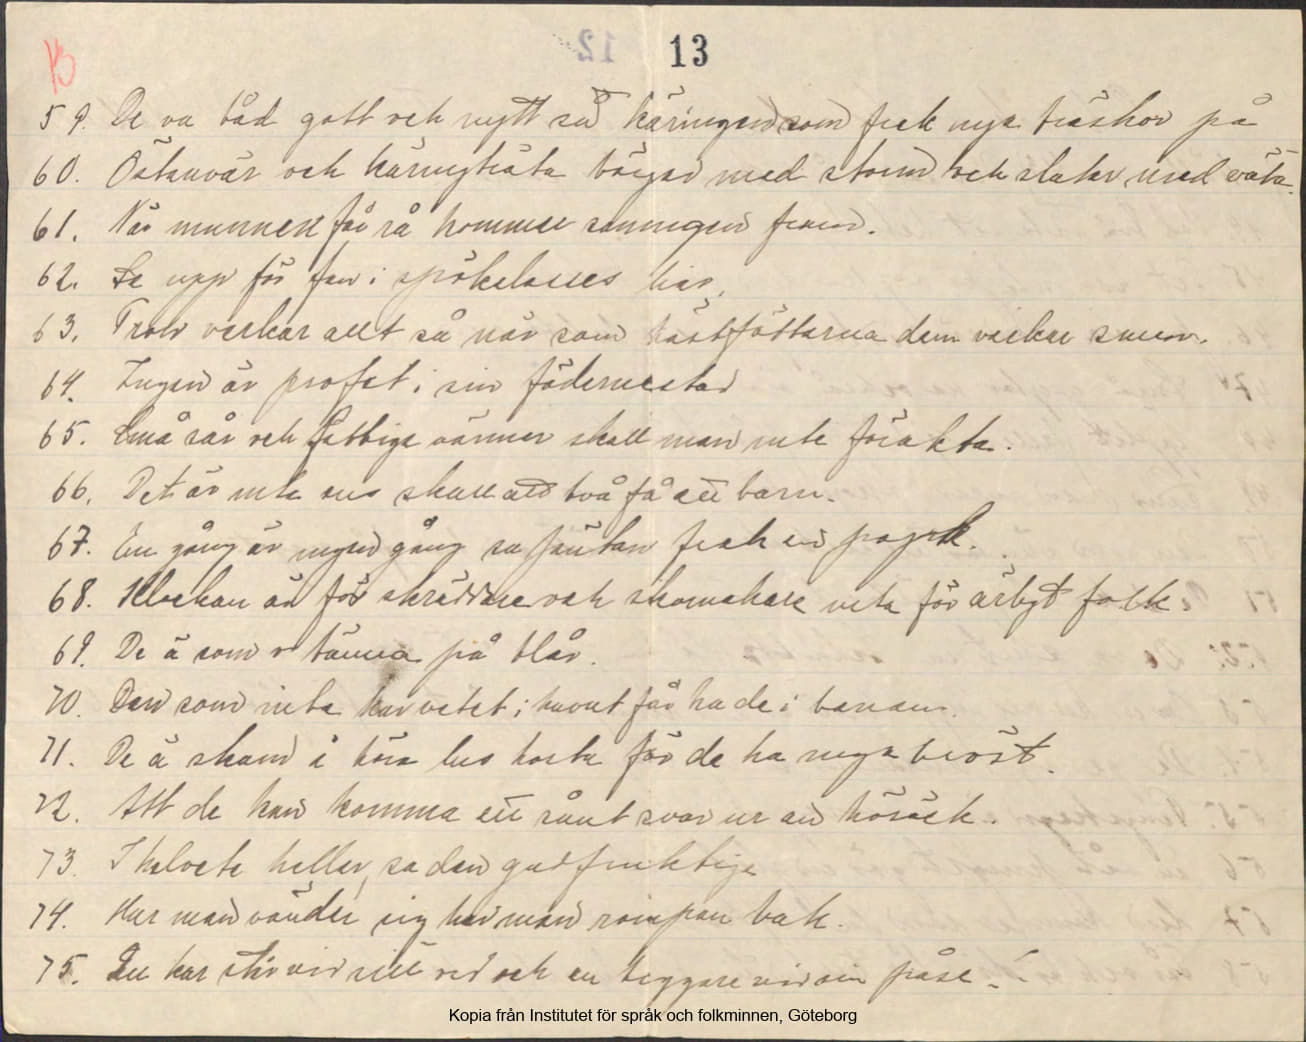 13
59. De va båd gott och nytt sa käringen som feck nya träskor på
60. Östanvär och käringträta börjar med storm och slutar med väta.
61. När munnen får rå kommer sanningen fram.
62. Se upp för fan i spökelsers
63. Trolv verkar allt så när som hästföttarna dem verkar smeen.
64. Ingen är profet i sin fädernestad
65. Små sår och fattiga vänner skall man inte förakta.
66. Det är inte ens skull att två få ett barn.
67. En gång är ingen gång sa jäntan feck en pojk.
68. Klockan är för skräddare och skomakare inte för ärligt folk.
69. De ä som tänna på blår.
70. Den som inte har vetet i huvut får ha de i benen.
71. De ä skam å höra lus hosta för de ha inga bröst.
72. Att de kan komma ett sånt svar ur en hösäck.
73. I helvete heller, sa den gudfruktige
74. Hur man vänder sig har man rumpan bak.
75. En kar står vid sitt ord och en tiggare vid sin påse.
Kopia från Institutet för språk och folkminnen, Göteborg